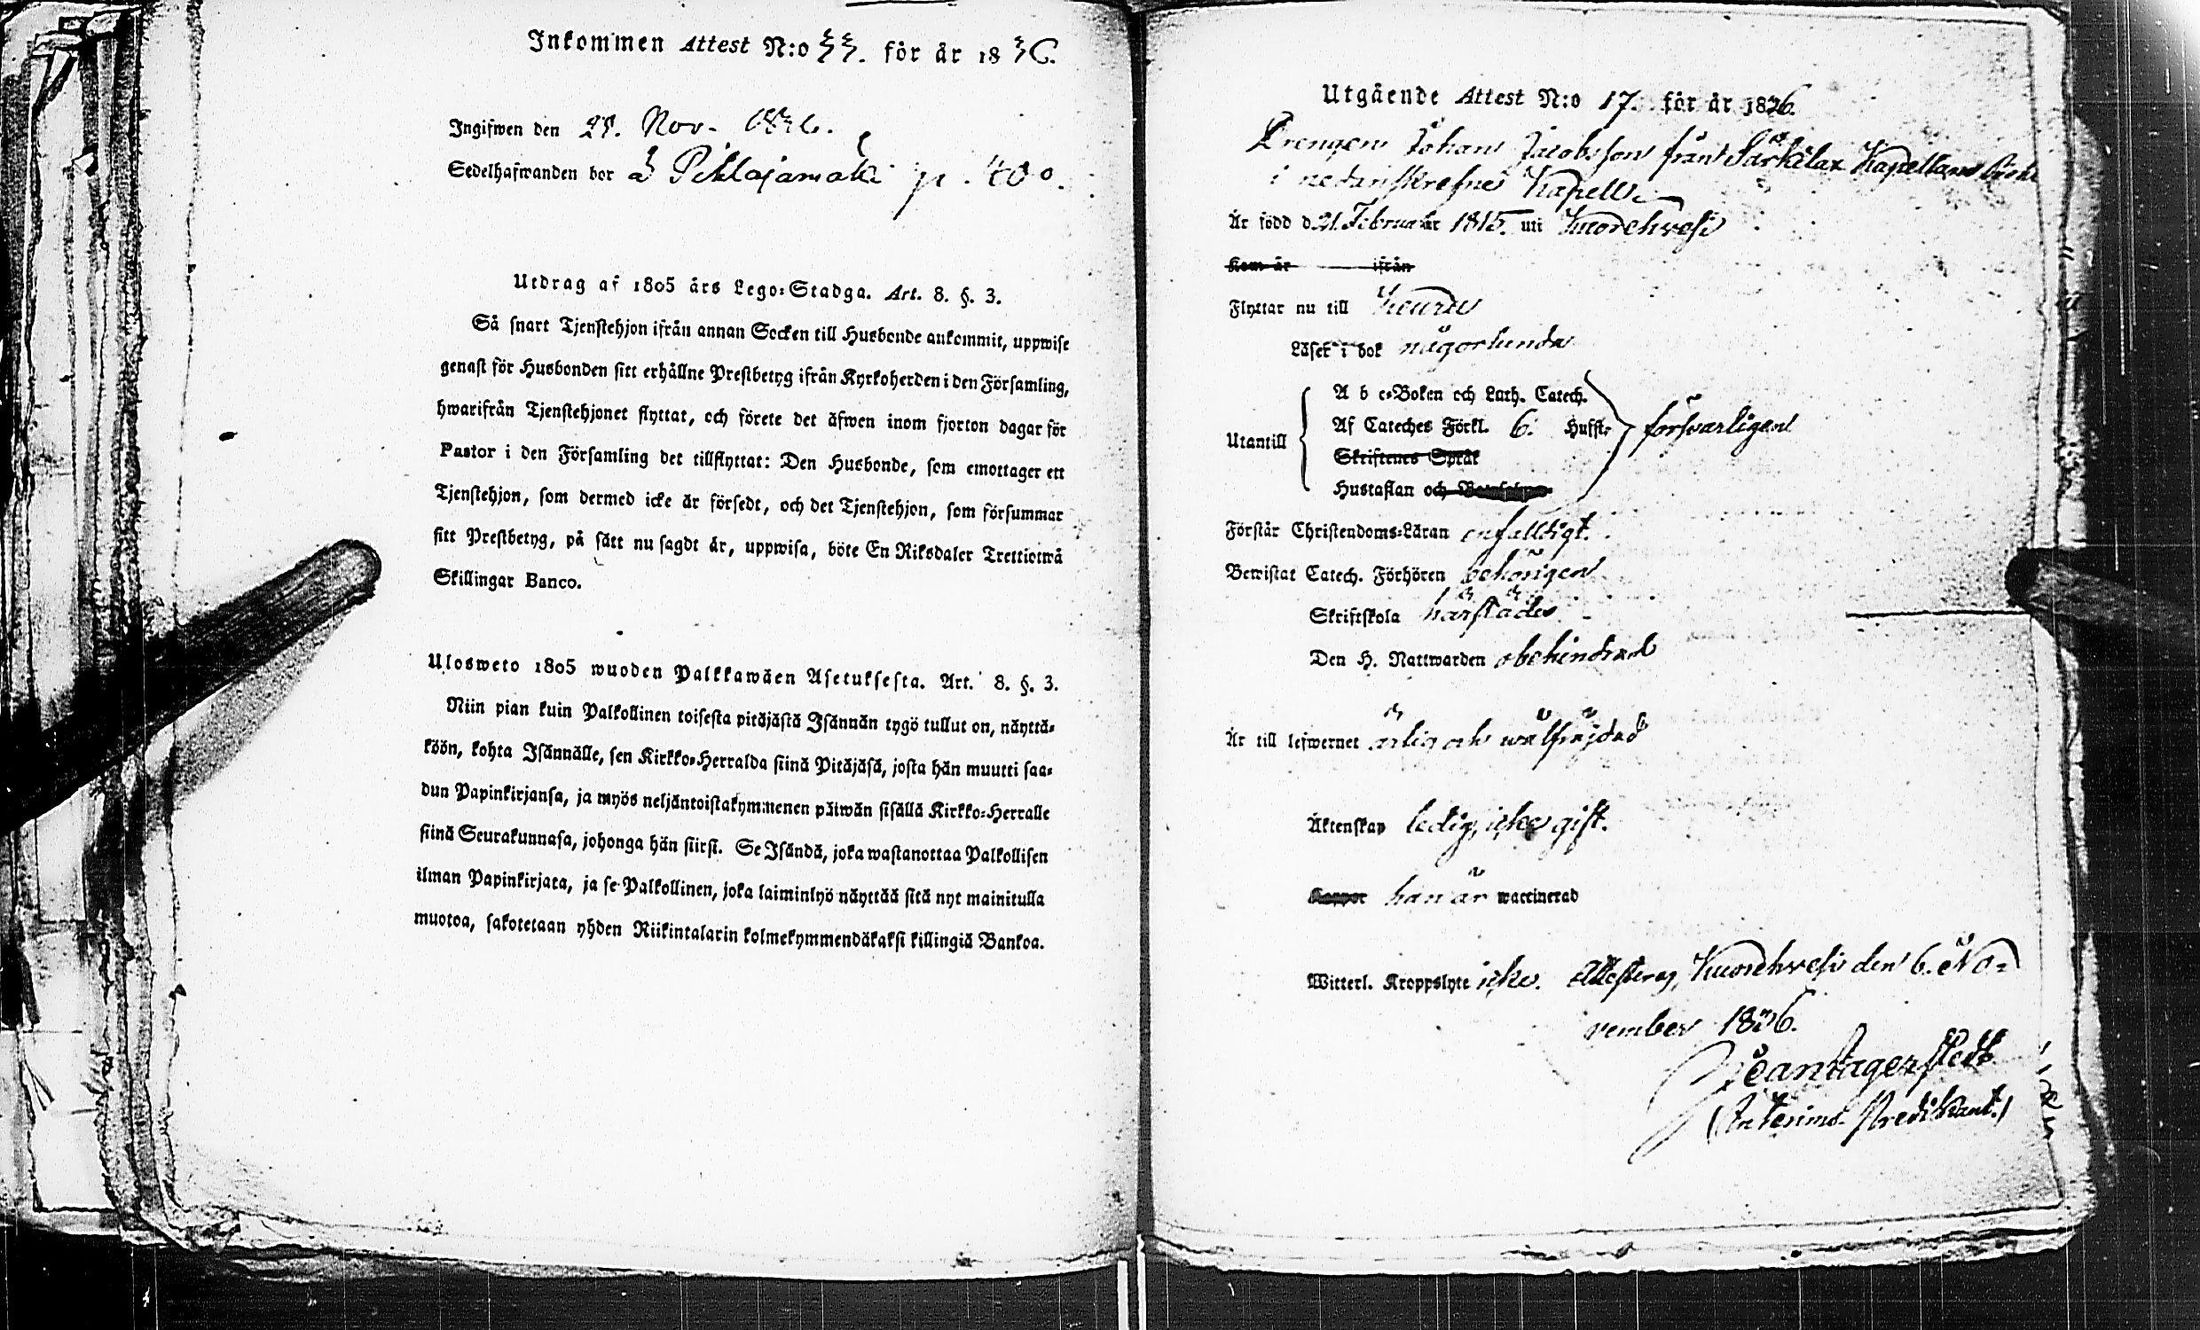 Inkommen Attest N:o 33. för år 1836.
Ingifwen den 29. Nov. 1836.
Sedelhafwanden bor å Pihlajamäki p. 400.
Utdrag af 1805 års Lego-Stadga. Art. 8. §. 3.
Så snart Tjenstehjon ifrån annan Socken till Husbonde ankommit, uppwise
genast för Husbonden sitt erhållne Prestbetyg ifrån Kyrkoherden i den Församling,
hwarifrån Tjenstehjonet flyttat, och förete det äfwen inom fjorton dagar för
Pastor i den Församling det tillflyttat: Den Husbonde, som emottager ett
Tjenstehjon, som dermed icke är försedt, och det Tjenstehjon, som försummar
sitt Prestbetyg, på sätt nu sagdt är, uppwisa, böte En Riksdaler Trettiotwå
Skillingar Banco.
Ulosweto 1805 wuoden Palkkawäen Asetuksesta. Art. 8. §. 3.
Niin pian kuin Palkollinen toisesta pitäjästä Isännän tygö tullut on, näyttä-
köön, kohta Isännälle, sen Kirkko-Herralda siinä Pitäjäsä, josta hän muutti saa-
dun Papinkirjansa, ja myös neljäntoistakymmenen päiwän sisällä Kirkko-Herralle
siinä Seurakunnasa, johonga hän siirsi. Se Isändä, joka wastanottaa Palkollisen
ilman Papinkirjata, ja se Palkollinen, joka laiminlyö näyttää sitä nyt mainitulla
muotoa, sakotetaan yhden Riikintalarin kolmekymmendäkaksi killingiä Bankoa.
Utgående Attest N:o 17. för år 1836.
Drengen Johan Jacobsson från Särkilax Kapellans
i nedanskrefne Kapell.
Är född d. 21. Februarii 1815. uti Kuorehvesi
Kom år ifrån
Flyttar nu till Keuru
Läser i bok någorlunda
A b c-Boken och Luth. Catech.
Af Cateches Förkl. 6. Hufst. försvarligen
Utantill
Skriftenes Språk
Hustaflan och
Förstår Christendoms-Läran enfalldigt.
Bewistat Catech. Förhören behörigen
Skriftskola härstädes
Den H. Nattwarden obehindrad
Är till lefwernet ärlig och wälfräjdad
Äktenskap ledig, icke gift.
Koppor han är waccinerad
Witterl. Kroppslyte icke. Attesteras, Kuorehvesi den 6. No-
vember 1836.
Jean Lagerstedt
(Interims Predikant.)